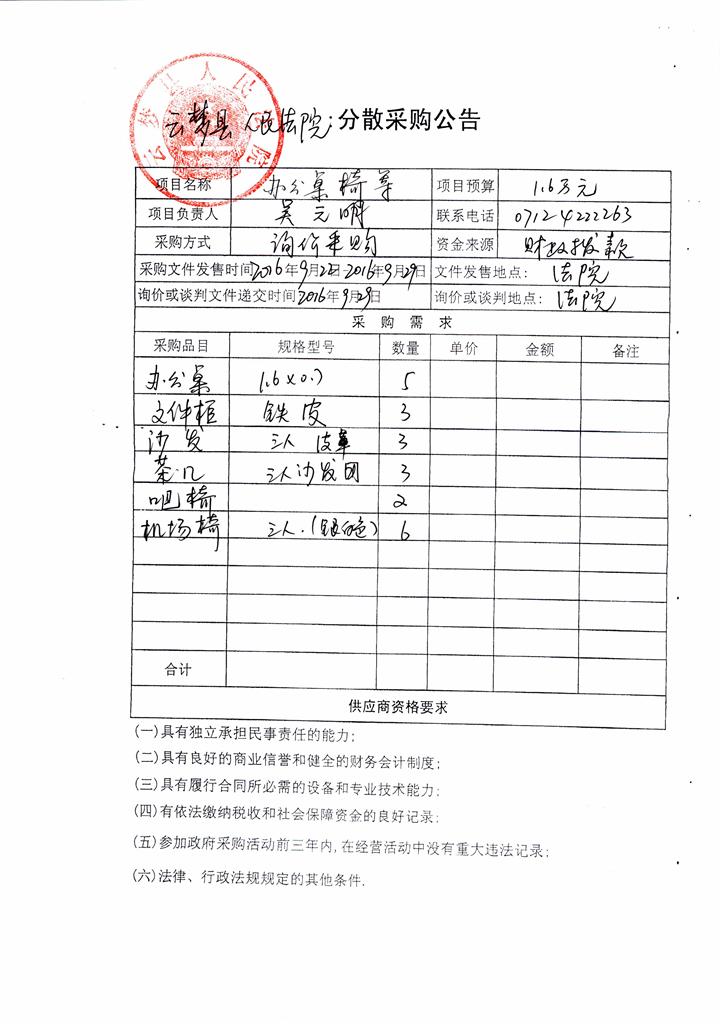 云梦县人民法院
云梦县人民法院:分散采购公告
项目名称 办公桌椅等 项目预算 1.6万元
项目负责人 吴元明 联系电话 0712-4222263
采购方式 询价采购 资金来源 财政拨款
采购文件发售时间2016年9月22日-2016年9月29日 文件发售地点: 法院
询价或谈判文件递交时间2016年9月29日 询价或谈判地点: 法院
采购需求
采购品目 规格型号 数量 单价 金额 备注
办公桌 1.6×0.7 5
文件柜 铁皮 3
沙发 三人 皮革 3
茶几 三人沙发用 3
吧椅 2
机场椅 三人.(银白色) 6
合计
供应商资格要求
(一)具有独立承担民事责任的能力;
(二)具有良好的商业信誉和健全的财务会计制度;
(三)具有履行合同所必需的设备和专业技术能力;
(四)有依法缴纳税收和社会保障资金的良好记录;
(五)参加政府采购活动前三年内,在经营活动中没有重大违法记录;
(六)法律、行政法规规定的其他条件.